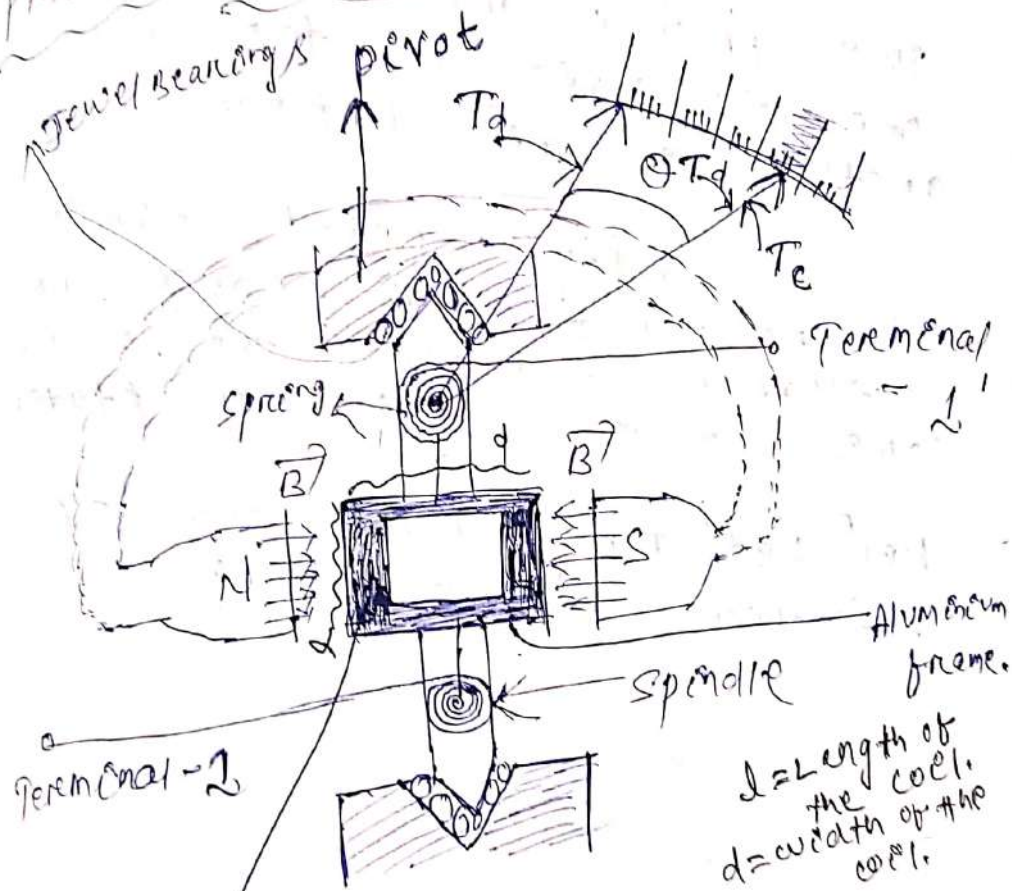 Jewel Bearings
pivot
Td
θ
Td
Tc
Tereminal
- 1
spreing
d
B
B
N
S
l
Aluminium
freame.
spindle
Tereminal - 2
l = Length of
the coil.
d = width of the
coil.